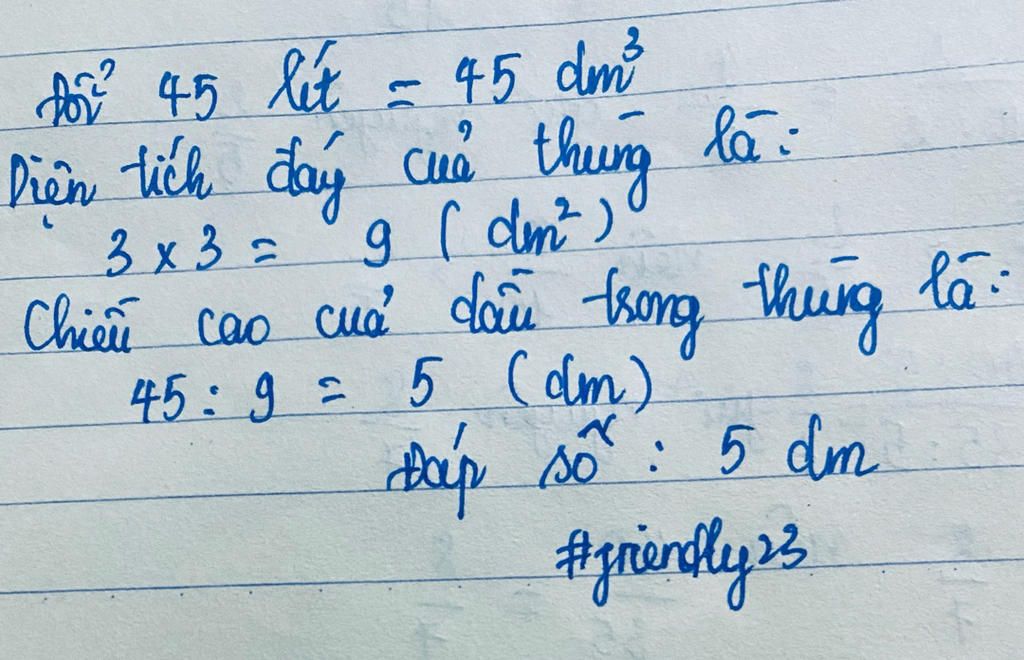 Đổi 45 lít = 45 dm³
Diện tích đáy của thùng là:
3 x 3 = 9 ( dm² )
Chiều cao của dầu trong thùng là:
45 : 9 = 5 (dm)
Đáp số : 5 dm
#friendly23